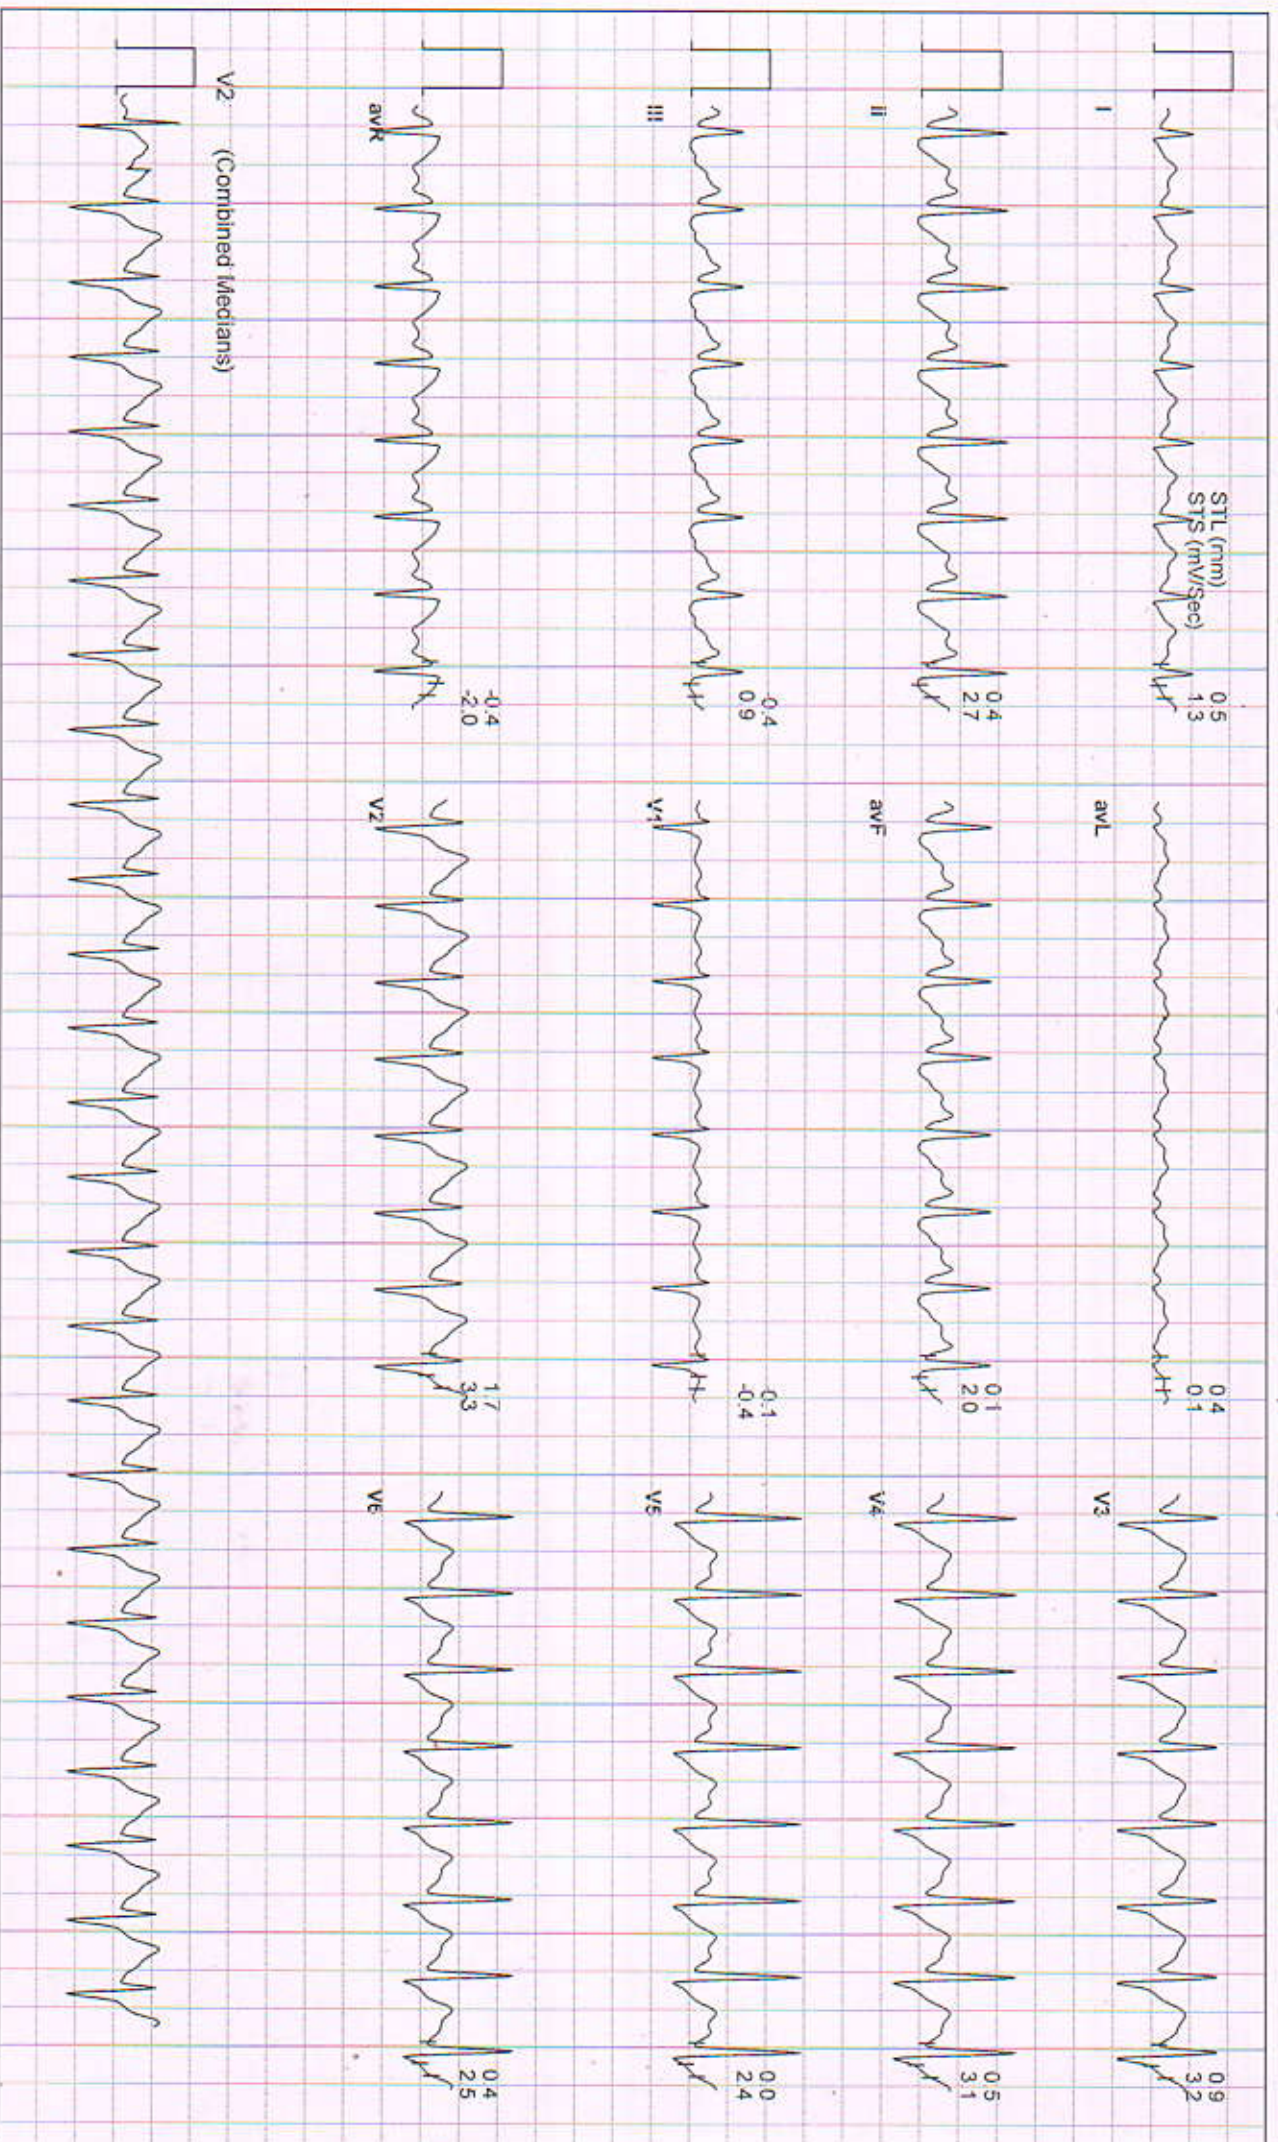 STL (mm)
STS (mV/Sec)
I
0.5
1.3
avL
0.4
0.1
V3
0.9
3.2
ii
0.4
2.7
avF
0.1
2.0
V4
0.5
3.1
III
-0.4
0.9
V1
-0.1
-0.4
V5
0.0
2.4
avR
-0.4
-2.0
V2
1.7
3.3
V6
0.4
2.5
V2 (Combined Medians)